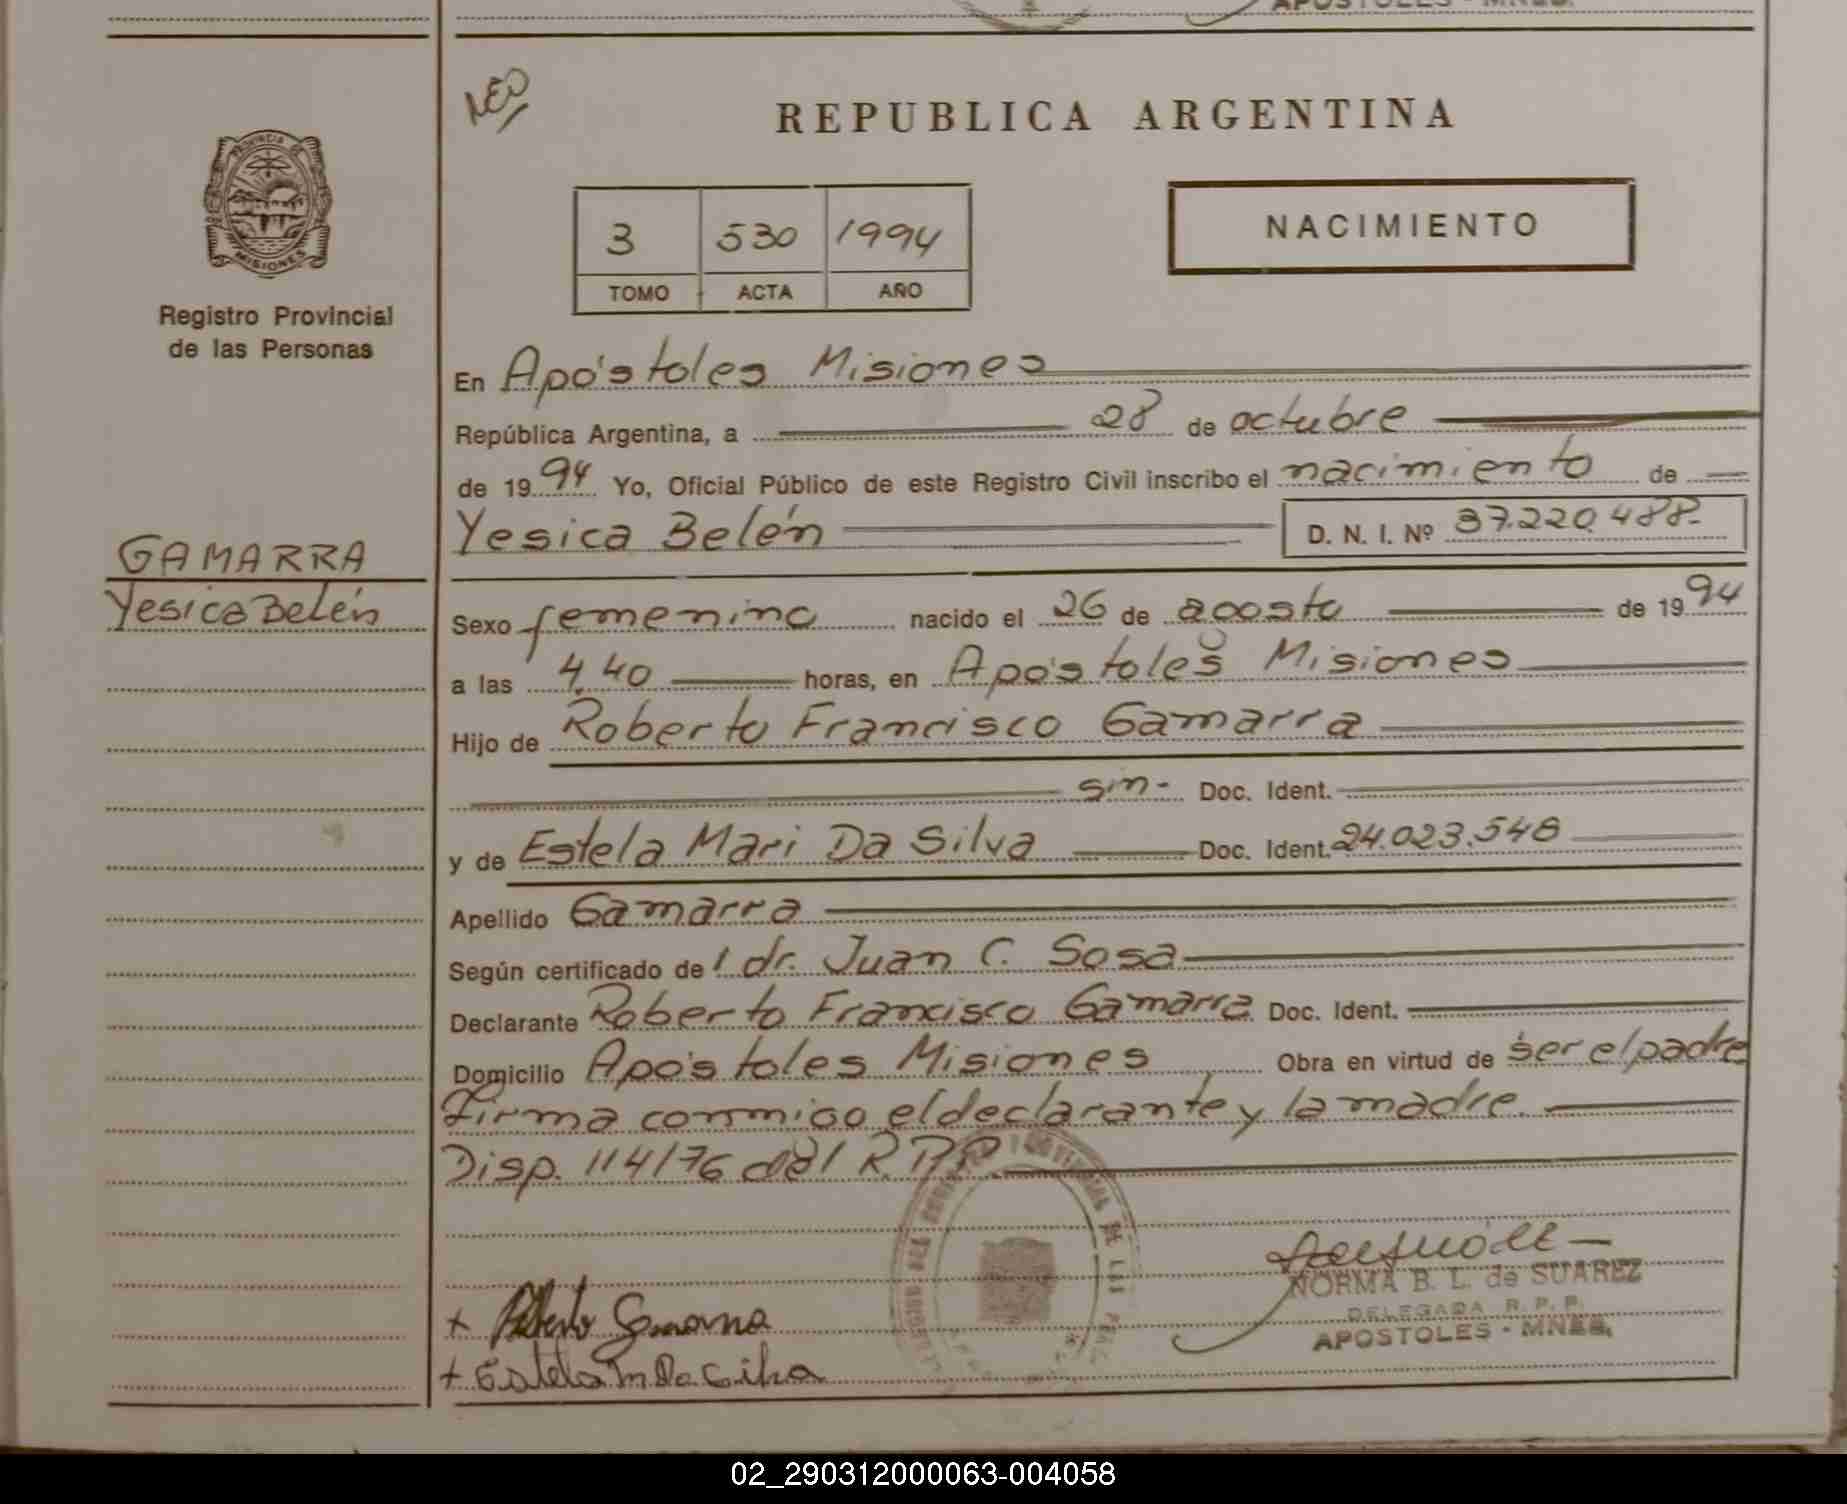 APOSTOLES - MNES.
NEO
REPUBLICA ARGENTINA
PROVINCIA DE
MISIONES
Registro Provincial
de las Personas
3 530 1994
TOMO ACTA AÑO
NACIMIENTO
En Apóstoles Misiones
República Argentina, a 28 de octubre
de 1994 Yo, Oficial Público de este Registro Civil inscribo el nacimiento de
Yesica Belén D. N. I. Nº 37.220.488-
GAMARRA
Yesica Belén
Sexo femenino nacido el 26 de agosto de 1994
a las 4,40 horas, en Apóstoles Misiones
Hijo de Roberto Francisco Gamarra
sin- Doc. Ident.
y de Estela Mari Da Silva Doc. Ident. 24.023.548
Apellido Gamarra
Según certificado de l dr. Juan C. Sosa
Declarante Roberto Francisco Gamarra Doc. Ident.
Domicilio Apóstoles Misiones Obra en virtud de ser el padre
Firma conmigo el declarante y la madre.
Disp. 114/76 del R.P.P.
NORMA B. L. de SUAREZ
DELEGADA R. P. P.
APOSTOLES - MNES.
+ Roberto Gamarra
+ Estela M Da Silva
02_290312000063-004058